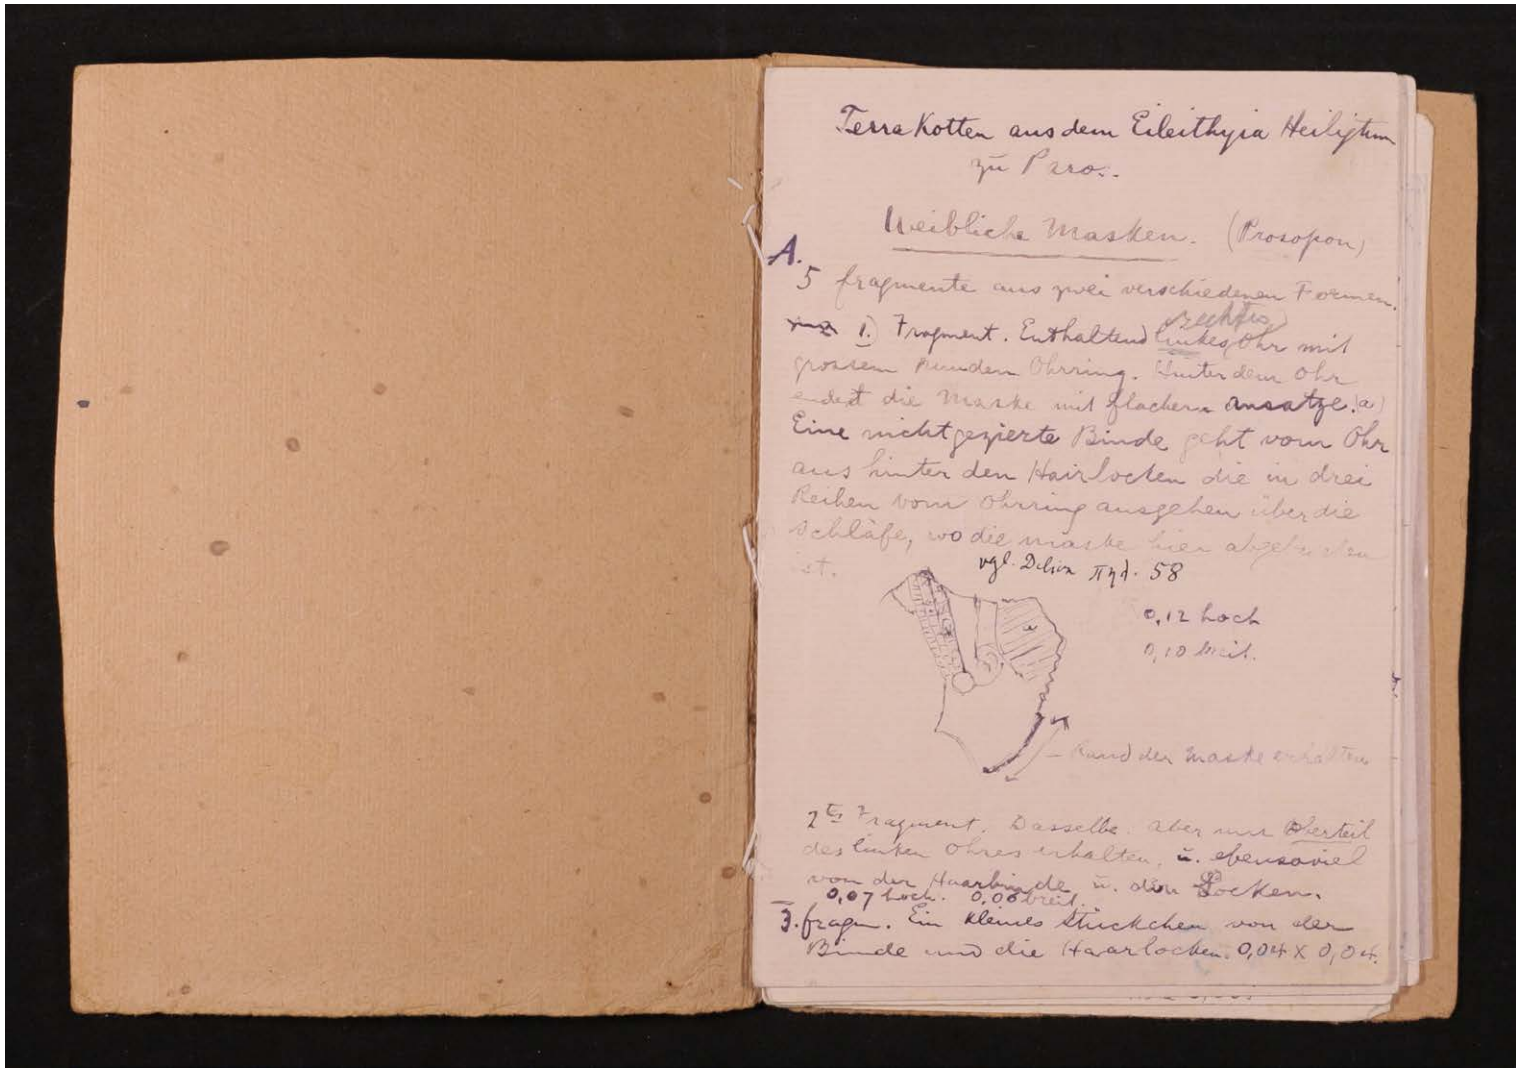 Terra Kotten aus dem Eileithyia Heiligtum
zu Paro..
Weibliche Masken. (Prosopon)
A.
5 fragmente aus zwei verschiedenen Formen.
1.) Fragment. Enthaltend linkes Ohr mit
rechtes
grossem runden Ohrring. Hinter dem Ohr
endet die Maske mit flachem ansatze. (a)
Eine nichtgezierte Binde geht vom Ohr
aus hinter den Hairlocken die in drei
Reihen vom Ohrring ausgehen über die
Schläfe, wo die maske hier abgebrochen
ist.
vgl. 58
a
0,12 hoch
0,10 breit.
– Rand der Maske erhalten
2tes Fragment. Dasselbe. aber nur Oberteil
des linken Ohres erhalten. u. ebensoviel
von der Haarbinde u. den Locken.
0,07 hoch. 0,06 breit.
3. fragm. Ein kleines Stückchen von der
Binde und die Haarlocken. 0,04 x 0,04.